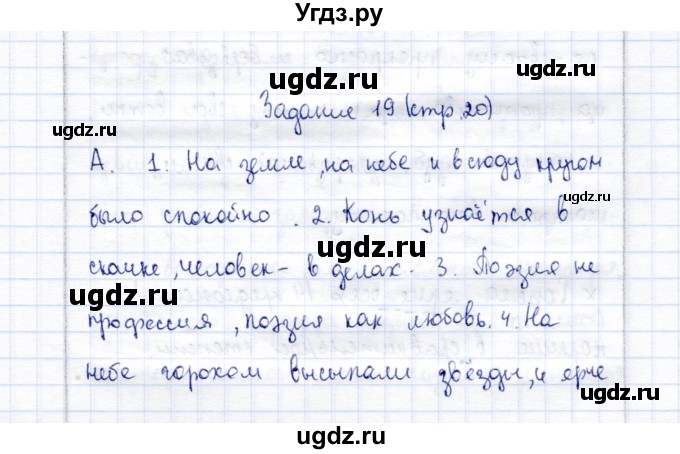 Угдз.ру
ugdz.ru
ugdz.ru
Задание 19 (стр. 20)
ugdz.ru
А. 1. На земле, на небе и всюду кругом
ugdz.ru
было спокойно. 2. Конь узнаётся в
ugdz.ru
скачке, человек - в делах. 3. Поэзия не
ugdz.ru
ugdz.ru
профессия, поэзия как любовь. 4. На
ugdz.ru
небе горохом высыпали звёзды, и ярче
ugdz.ru
ugdz.ru